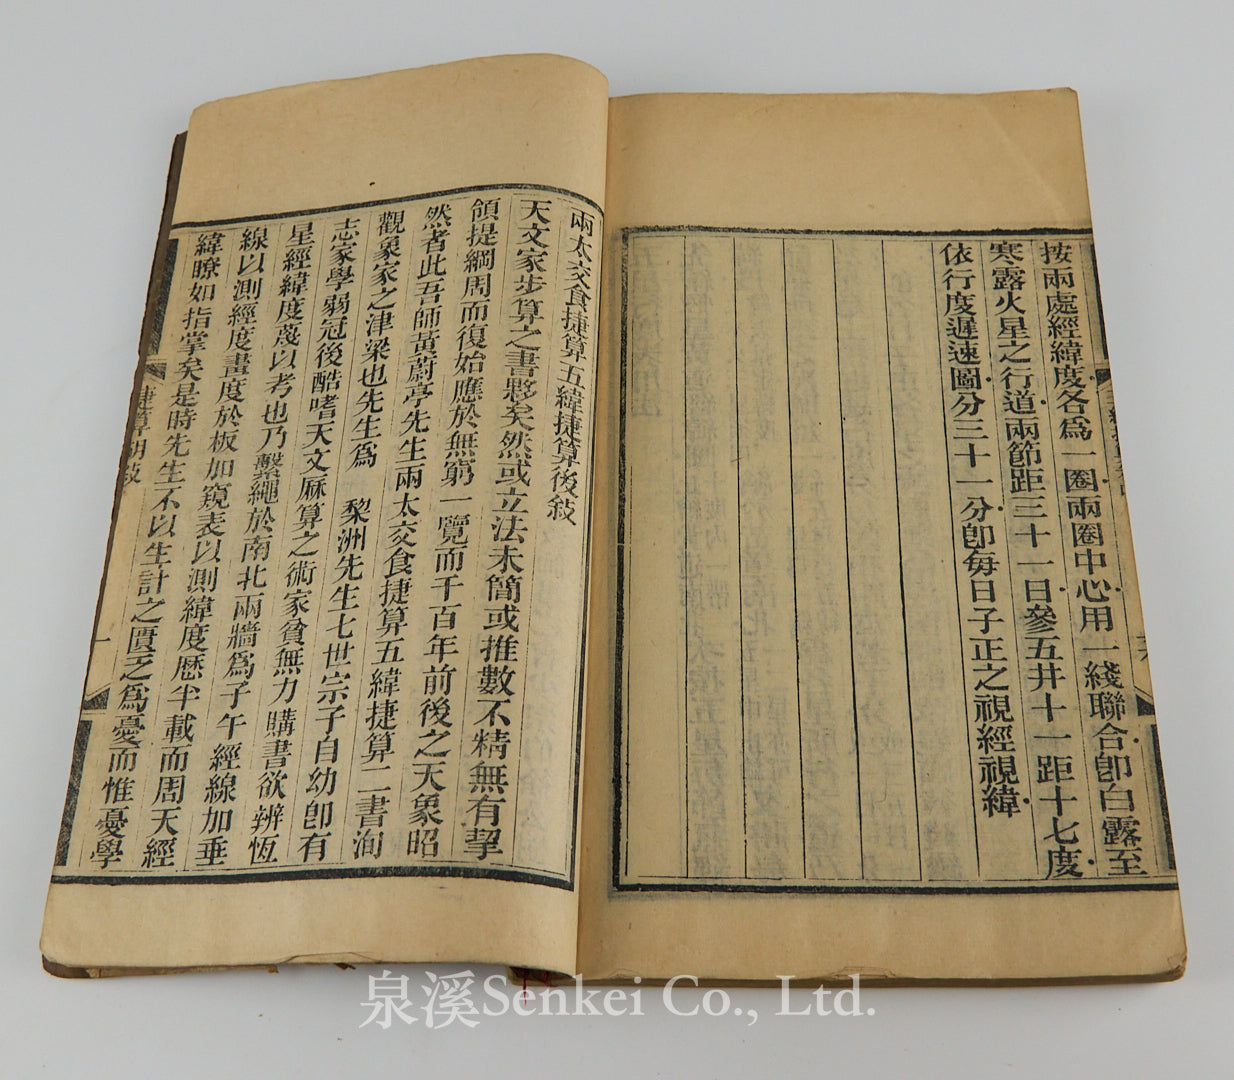 按兩處經緯度各爲一圈兩圈中心用一綫聯合卽白露至
寒露火星之行道兩節距三十一日參五井十一距十七度
依行度遲速圖分三十一分卽每日子正之視經視緯
兩太交食捷算五緯捷算後敍
天文家步算之書夥矣然或立法未簡或推數不精無有挈
領提綱周而復始應於無窮一覽而千百年前後之天象昭
然者此吾師黃蔚亭先生兩太交食捷算五緯捷算二書洵
觀象家之津梁也先生爲 棃洲先生七世宗子自幼卽有
志家學弱冠後酷嗜天文厤算之術家貧無力購書欲辨恆
星經緯度蔑以考也乃繫繩於南北兩牆爲子午經線加垂
線以測經度畫度於板加窺表以測緯度厯半載而周天經
緯瞭如指掌矣是時先生不以生計之匱乏爲憂而惟憂學
捷算胡敍
一
泉溪Senkei Co., Ltd.